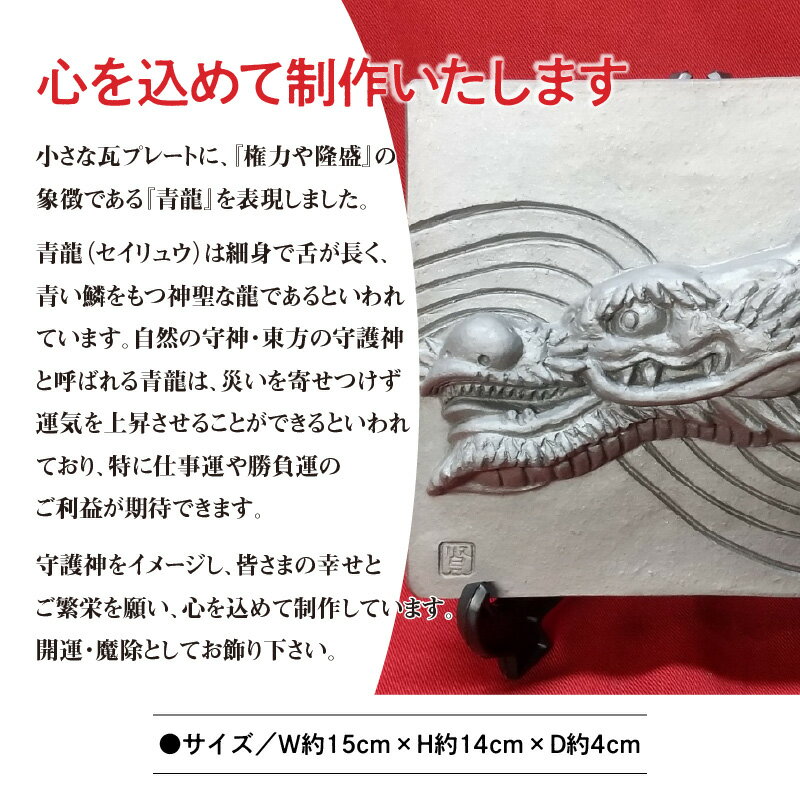 心を込めて制作いたします
小さな瓦プレートに、『権力や隆盛』の
象徴である『青龍』を表現しました。
青龍（セイリュウ）は細身で舌が長く、
青い鱗をもつ神聖な龍であるといわれ
ています。自然の守神・東方の守護神
と呼ばれる青龍は、災いを寄せつけず
運気を上昇させることができるといわれ
ており、特に仕事運や勝負運の
ご利益が期待できます。
守護神をイメージし、皆さまの幸せと
ご繁栄を願い、心を込めて制作しています。
開運・魔除としてお飾り下さい。
●サイズ／W約15cm×H約14cm×D約4cm